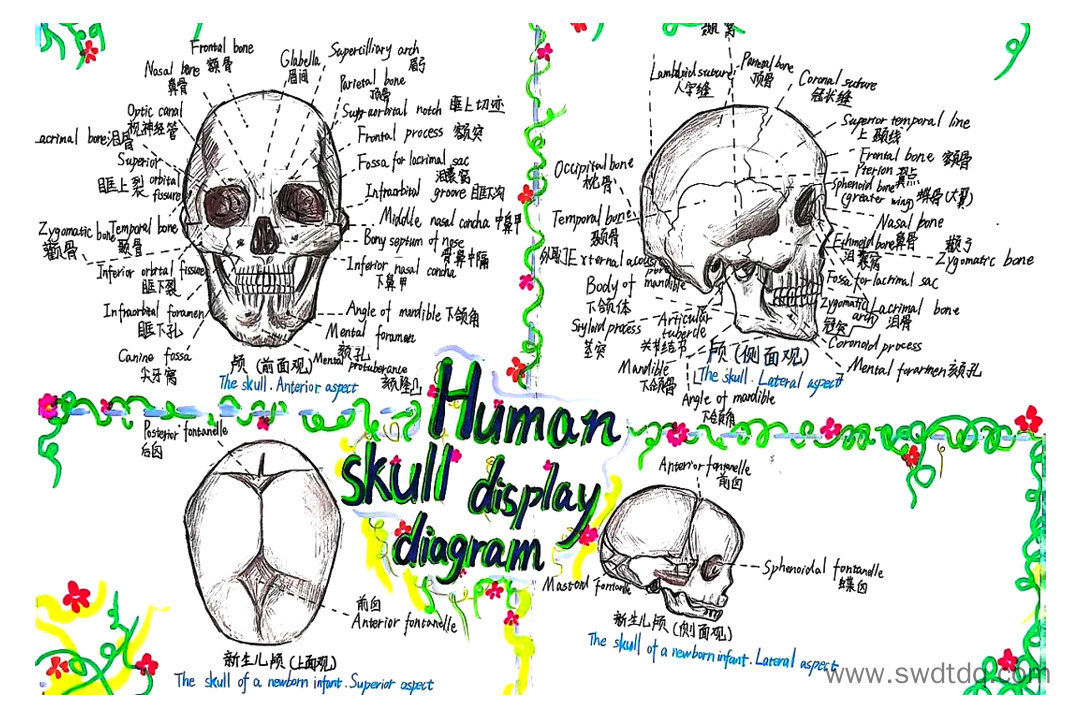 Frontal bone
额骨
Glabella
眉间
Superciliary arch
眉弓
Nasal bone
鼻骨
Parietal bone
顶骨
Optic canal
视神经管
Supraorbital notch 眶上切迹
acrimal bone 泪骨
Frontal process 额突
Superior
眶上裂 orbital
fissure
Fossa for lacrimal sac
泪囊窝
Infraorbital groove 眶下沟
Zygomatic bone
颧骨
Temporal bone
颞骨
Middle nasal concha 中鼻甲
Bony septum of nose
骨鼻中隔
Inferior orbital fissure
眶下裂
Inferior nasal concha
下鼻甲
Infraorbital foramen
眶下孔
Angle of mandible 下颌角
Mental foramen
颏孔
Canine fossa
尖牙窝
Mental protuberance
颏隆凸
颅 (前面观)
The skull. Anterior aspect
Lambdoid suture
人字缝
Parietal bone
顶骨
Coronal suture
冠状缝
Superior temporal line
上颞线
Frontal bone 额骨
Pterion 翼点
Sphenoid bone
(greater wing) 蝶骨(大翼)
Occipital bone
枕骨
Nasal bone
鼻骨
Temporal bone
颞骨
Ethmoid bone
Zygomatic bone
泪囊窝
Fossa for lacrimal sac
External acous
Body of
mandible
下颌体
Zygomatic
arch
Lacrimal bone
泪骨
Styloid process
茎突
Articular
tubercle
关节结节
冠突
Coronoid process
Mandible
下颌骨
Mental foramen 颏孔
Angle of mandible
下颌角
颅 (侧面观)
The skull. Lateral aspect
Human
skull display
diagram
Posterior fontanelle
后囟
前囟
Anterior fontanelle
新生儿颅 (上面观)
The skull of a newborn infant. Superior aspect
Anterior fontanelle
前囟
Sphenoidal fontanelle
蝶囟
Mastoid fontanelle
新生儿颅 (侧面观)
The skull of a newborn infant. Lateral aspect
www.swdtdq.com